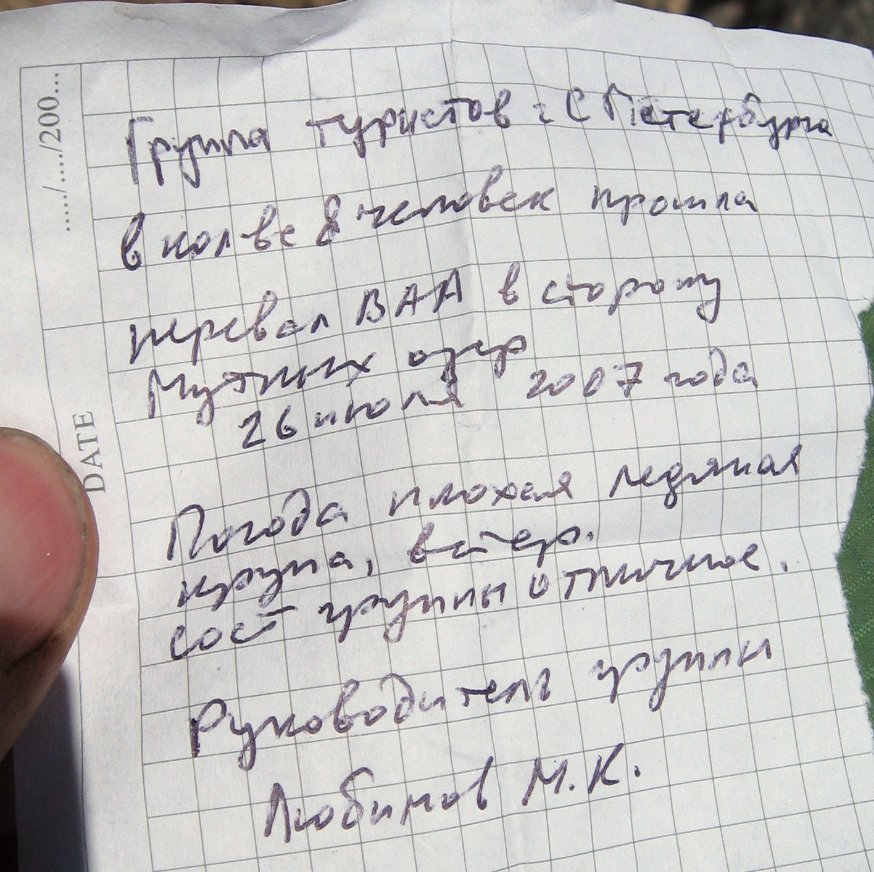 ...../...../200...
DATE
Группа туристов г. С Петербурга
в кол ве 8 человек прошла
перевал ВАА в сторону
Мутных озер
26 июля 2007 года
Погода плохая ледяная
крупа, ветер.
сост группы отличное.
Руководитель группы
Любимов М.К.